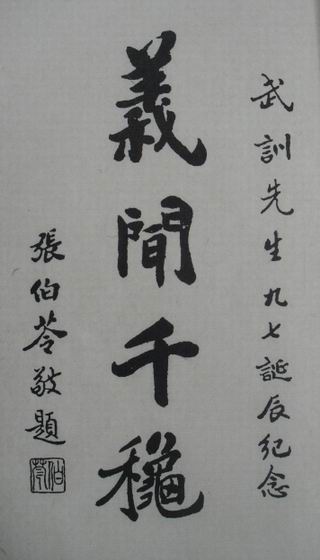 武訓先生九七誕辰纪念
義聞千穐
張伯苓敬題
伯苓